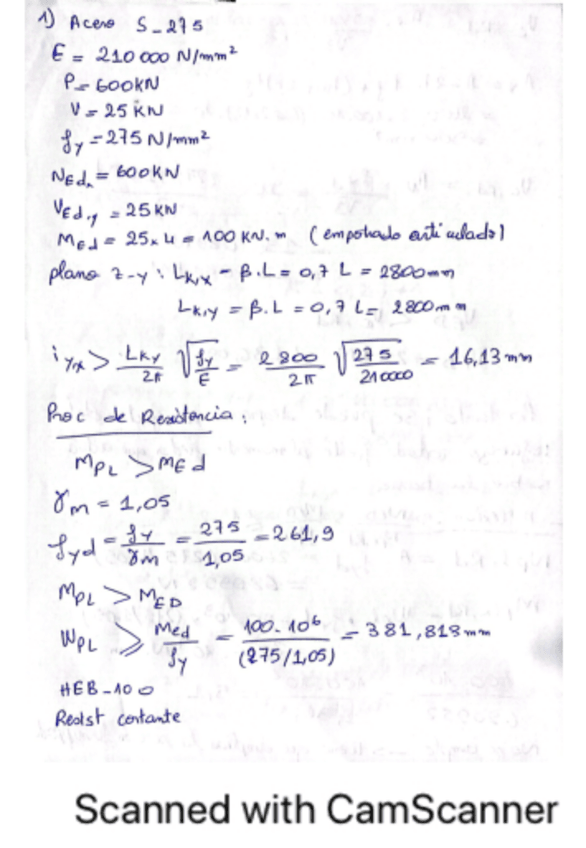 1) Acero S-275
E = 210 000 N/mm²
P = 600KN
V = 25 KN
fy = 275 N/mm²
NEd, = 600KN
VEd,y = 25 KN
MEd = 25 x 4 = 100 KN.m (empotrado articulado)
plano z-y : Lk,x = β.L = 0,7 L = 2800mm
Lk,y = β.L = 0,7 L = 2800mm
iyx > Lky/2π √(fy/E) = 2800/2π √(275/210000) = 16,13 mm
Proc de Resistencia :
MPL > MEd
γm = 1,05
fyd = fy/γm = 275/1,05 = 261,9
MPL > MED
WPL ≥ Med/fy = 100.10⁶/(275/1,05) = 381,818 mm
HEB-100
Resist cortante
Scanned with CamScanner